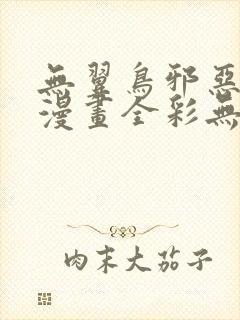 無翼鳥邪惡
漫畫全彩無
肉末大茄子